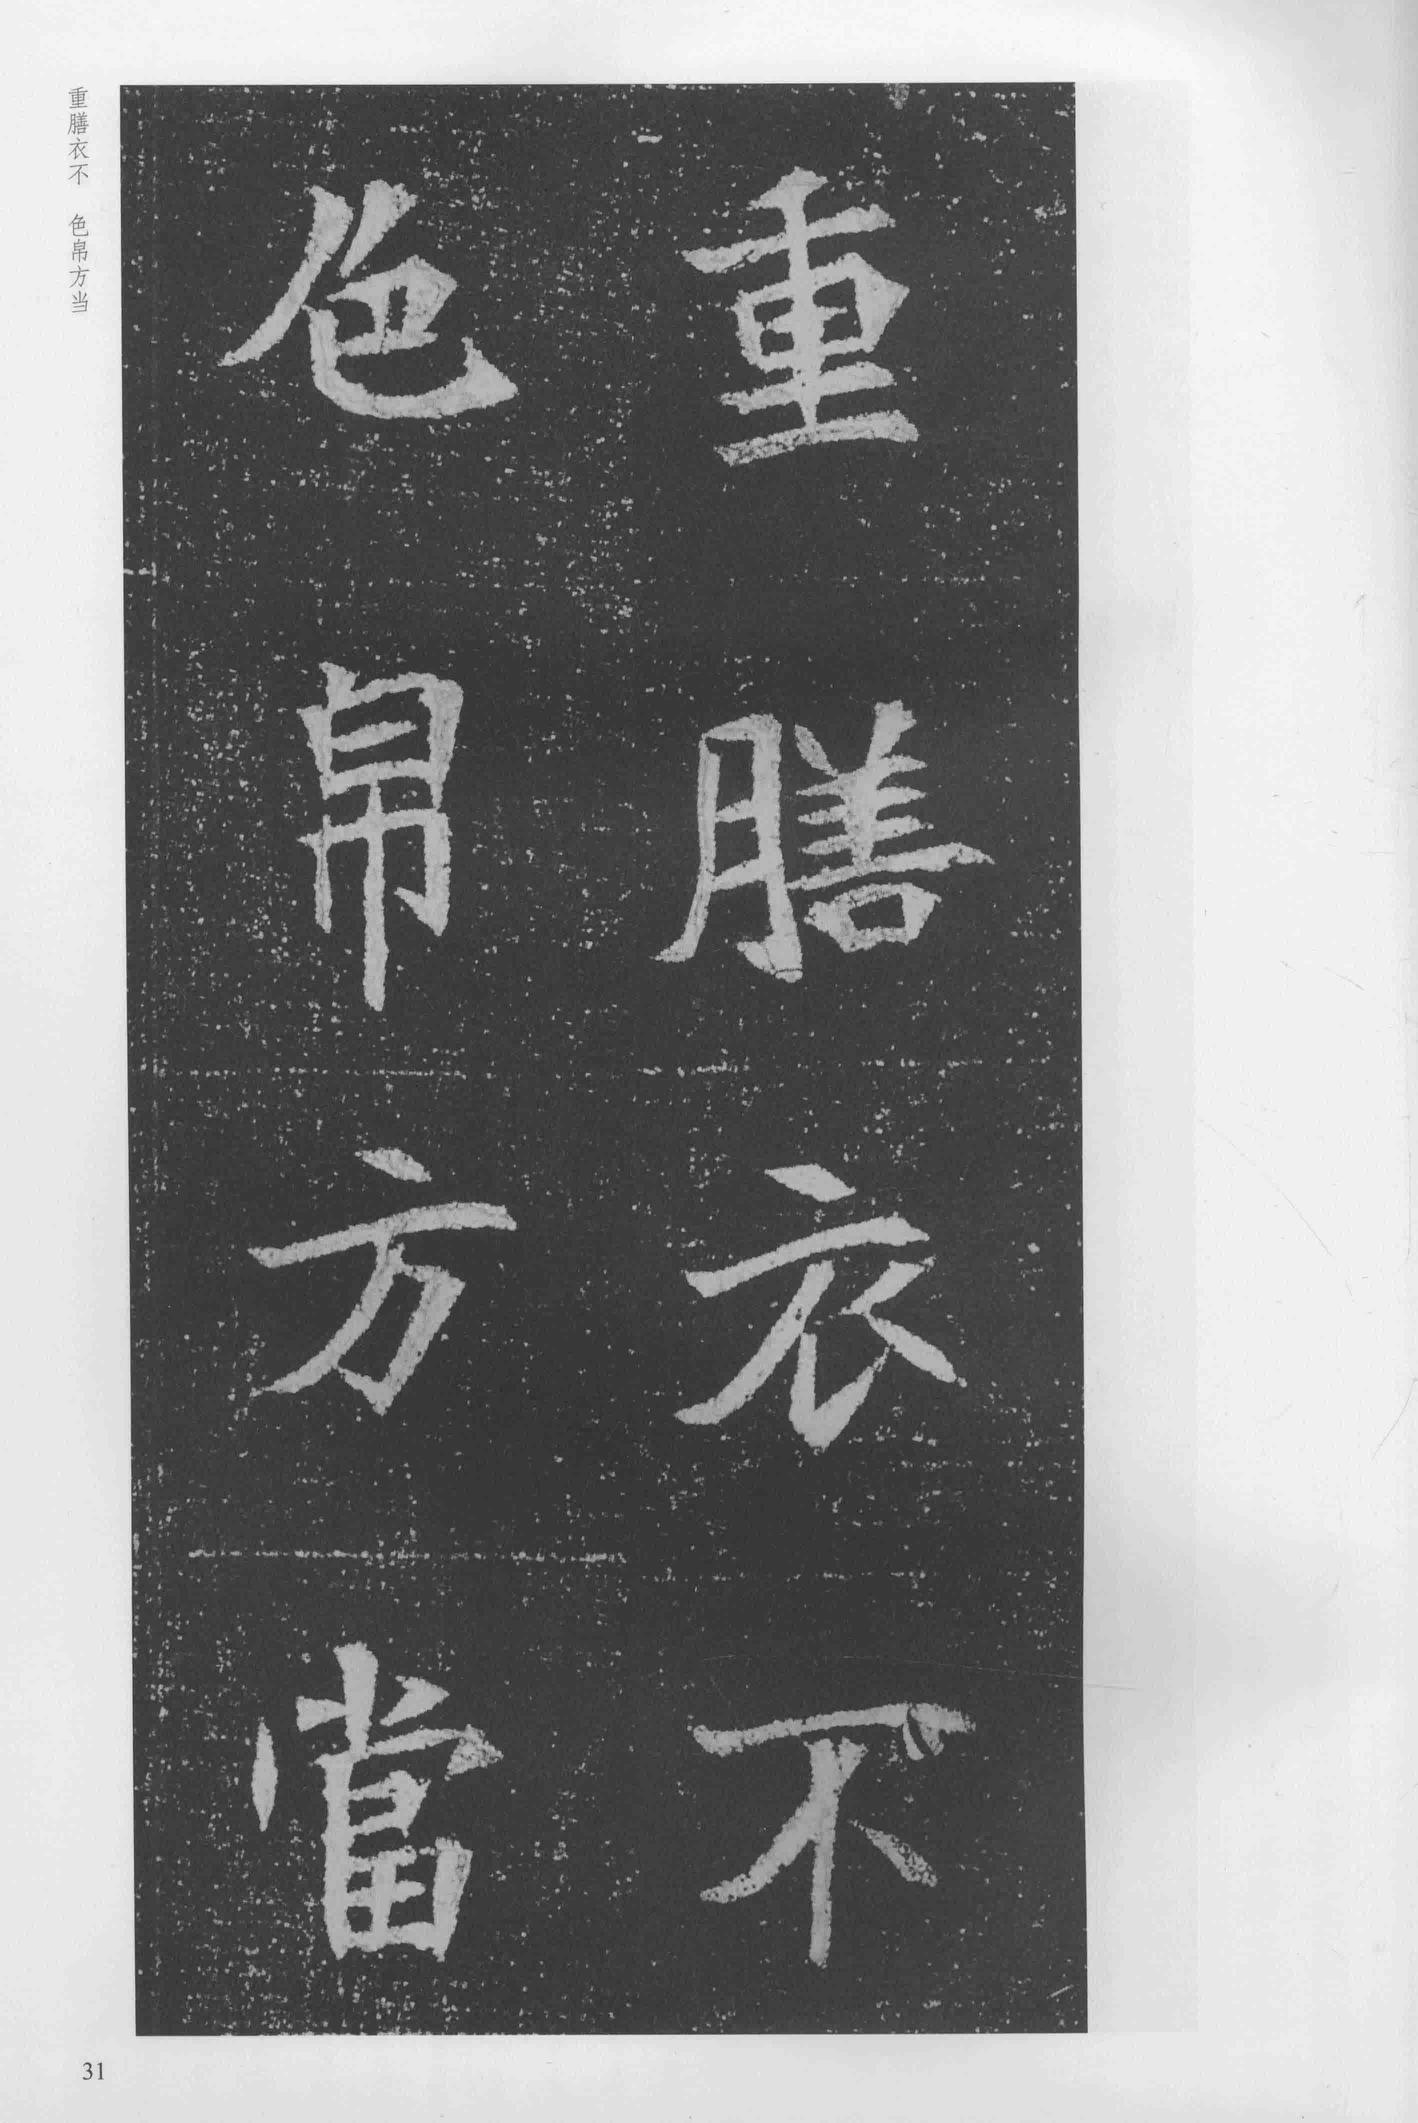 重膳衣不
色帛方當
重膳衣不 色帛方当
31